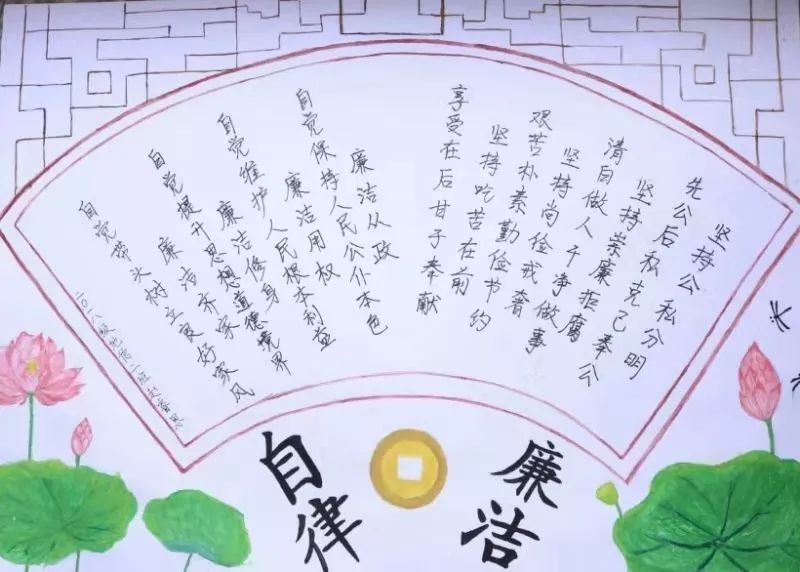 坚持公私分明
先公后私克己奉公
坚持崇廉拒腐
清白做人干净做事
坚持尚俭戒奢
艰苦朴素勤俭节约
坚持吃苦在前
享受在后甘于奉献
廉洁从政
自觉保持人民公仆本色
廉洁用权
自觉维护人民根本利益
廉洁修身
自觉提升思想道德境界
廉洁齐家
自觉带头树立良好家风
二〇一八级
廉洁
自律